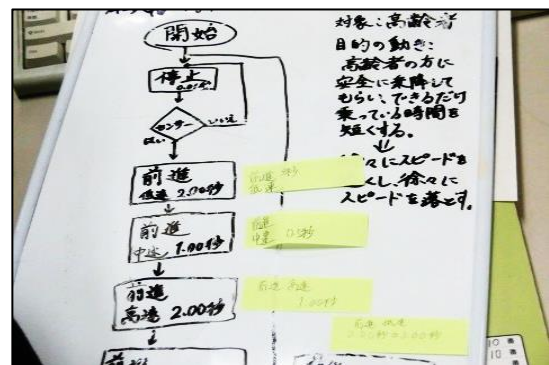 開始
停止
0.01秒
センサー
いいえ
はい
前進
低速 2.00秒
前進
中速 1.00秒
前進
高速 2.00秒
前進
前進
低速
前進
中速 0.5秒
前進 高速
1.00秒
前進 低速
対象:高齢者
目的の動き:
高齢者の方に
安全に乗降して
もらい、できるだけ
乗っている時間を
短くする。
にスピードを
くし、徐々に
スピードを落とす。